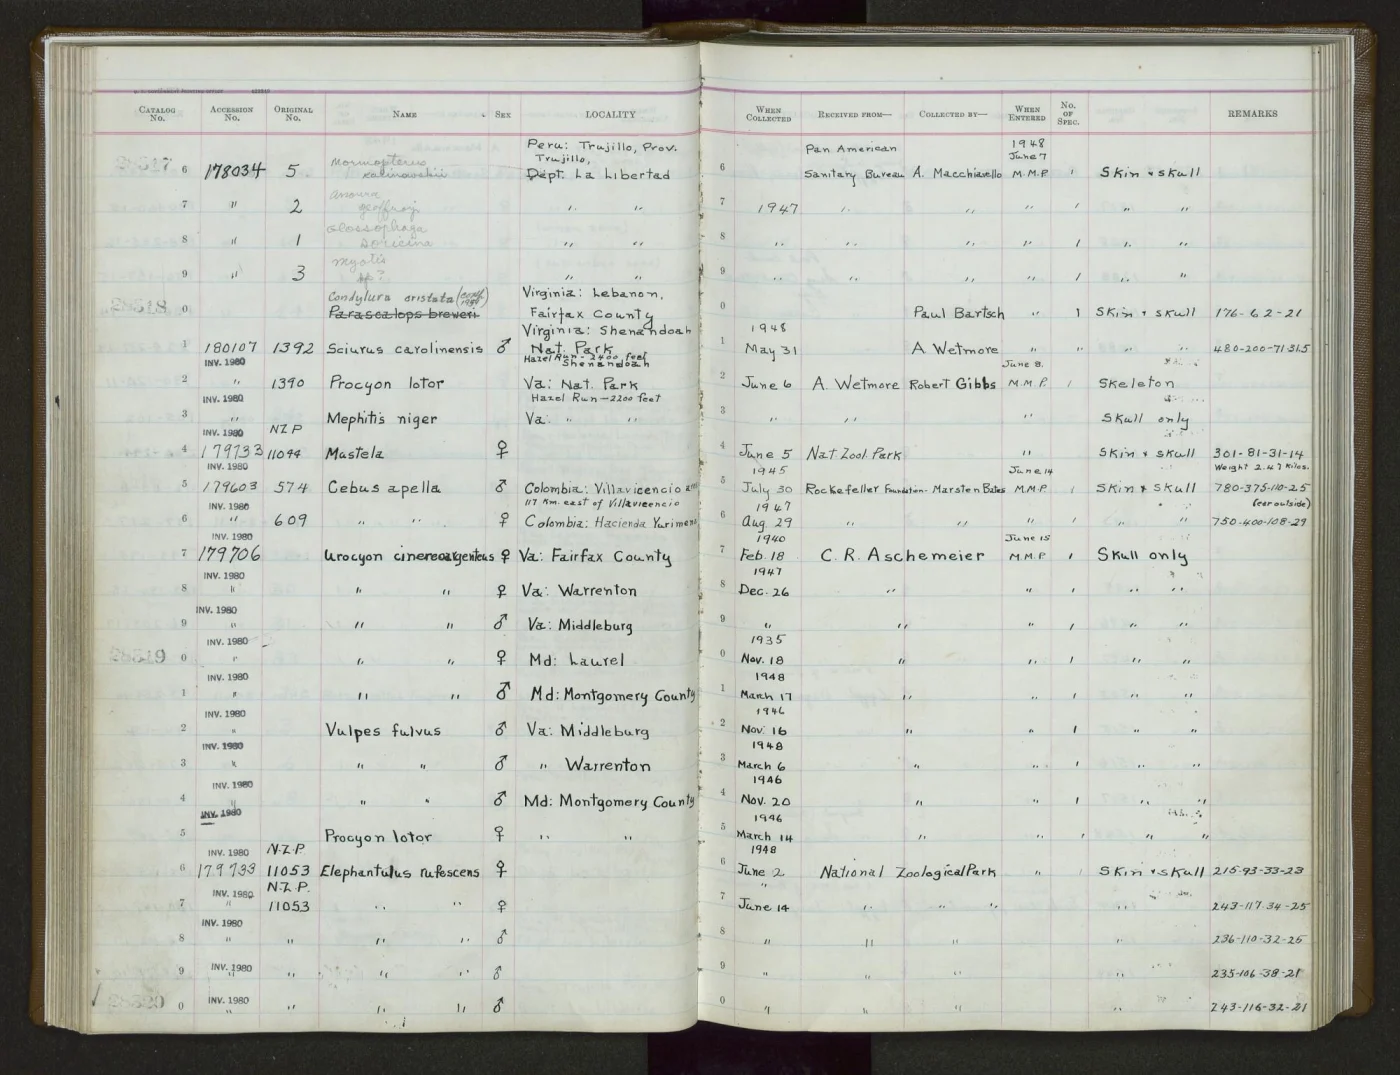 CATALOG No. ACCESSION No. ORIGINAL No. NAME SEX LOCALITY WHEN COLLECTED RECEIVED FROM— COLLECTED BY— WHEN ENTERED No. OF SPEC. REMARKS
Peru: Trujillo, Prov. Pan American 1948
Mormopterus Trujillo, June 7
6 178034 5 kalinowskii Dept. La Libertad 6 Sanitary Bureau A. Macchiavello M.M.P. 1 Skin & skull
Anoura
7 " 2 geoffroyi " " 7 1947 " " " 1 " "
Glossophaga
8 " 1 soricina " " 8 " " " " 1 " "
Myotis
9 " 3 sp? " " 9 " " " " 1 " "
Condylura cristata Virginia: Lebanon,
0 Parascalops breweri Fairfax County 0 Paul Bartsch " 1 Skin & skull 176-62-21
Virginia: Shenandoah 1948
1 180107 1392 Sciurus carolinensis ♂ Nat. Park 1 May 31 A Wetmore " " " " 480-200-71-31.5
INV. 1980 Hazel Run - 2400 feet June 8.
Shenandoah
2 " 1390 Procyon lotor Va: Nat. Park 2 June 6 A. Wetmore Robert Gibbs M.M.P. 1 Skeleton
INV. 1980 Hazel Run - 2200 feet
3 " Mephitis niger Va: " " 3 " " " Skull only
INV. 1980 NZP
4 179733 11044 Mustela ♀ 4 June 5 Nat Zool. Park " Skin & skull 301-81-31-14
INV. 1980 1945 June 14 Weight 2.47 Kilos.
5 179603 574 Cebus apella ♂ Colombia: Villavicencio and 5 July 30 Rockefeller Foundation- Marsten Bates M.M.P. 1 Skin & skull 780-375-110-25
INV. 1980 117 Km. east of Villavicencio 1947 (ear outside)
6 " 609 " " ♀ Colombia: Hacienda Yurimena 6 Aug. 29 " " " " " 750-400-108-29
INV. 1980 1940 June 15
7 179706 Urocyon cinereoargenteus ♀ Va: Fairfax County 7 Feb. 18 C. R. Aschemeier M.M.P. 1 Skull only
INV. 1980 1947
8 " " " ♀ Va: Warrenton 8 Dec. 26 " " 1 " "
INV. 1980
9 " " " ♂ Va: Middleburg 9 " " " 1 " "
INV. 1980 1935
0 " " " ♀ Md: Laurel 0 Nov. 18 " " 1 " "
INV. 1980 1948
1 " " " ♂ Md: Montgomery County 1 March 17 " " 1 " "
INV. 1980 1946
2 " Vulpes fulvus ♂ Va: Middleburg 2 Nov. 16 " " 1 " "
INV. 1980 1948
3 " " " ♂ " Warrenton 3 March 6 " " 1 " "
INV. 1980 1946
4 " " " ♂ Md: Montgomery County 4 Nov. 20 " " 1 " "
INV. 1980 1946
5 Procyon lotor ♀ " " 5 March 14 " " 1 " "
INV. 1980 N.Z.P. 1948
6 179733 11053 Elephantulus rufescens ♀ 6 June 2 National Zoological Park " 1 Skin & skull 215-93-33-23
INV. 1980 N.Z.P. "
7 " 11053 " " ♀ 7 June 14 " " " " 243-117-34-25
INV. 1980
8 " " " " ♂ 8 " " " " 236-110-32-25
INV. 1980
9 " " " " ♂ 9 " " " " 235-106-38-21
INV. 1980
0 " " " " ♂ 0 " " " " 243-116-32-21